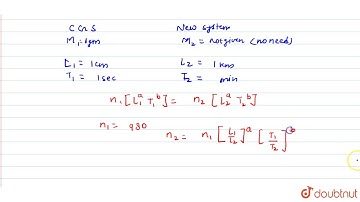 C G S New system
M₁ = 1gm M₂ = not given (no need)
L₁ = 1cm L₂ = 1km
T₁ = 1sec T₂ = min
n₁ [L₁ᵃ T₁ᵇ] = n₂ [L₂ᵃ T₂ᵇ]
n₁ = 980
n₂ = n₁ [L₁/T₂]ᵃ [T₁/T₂]ᵇ
doubtnut